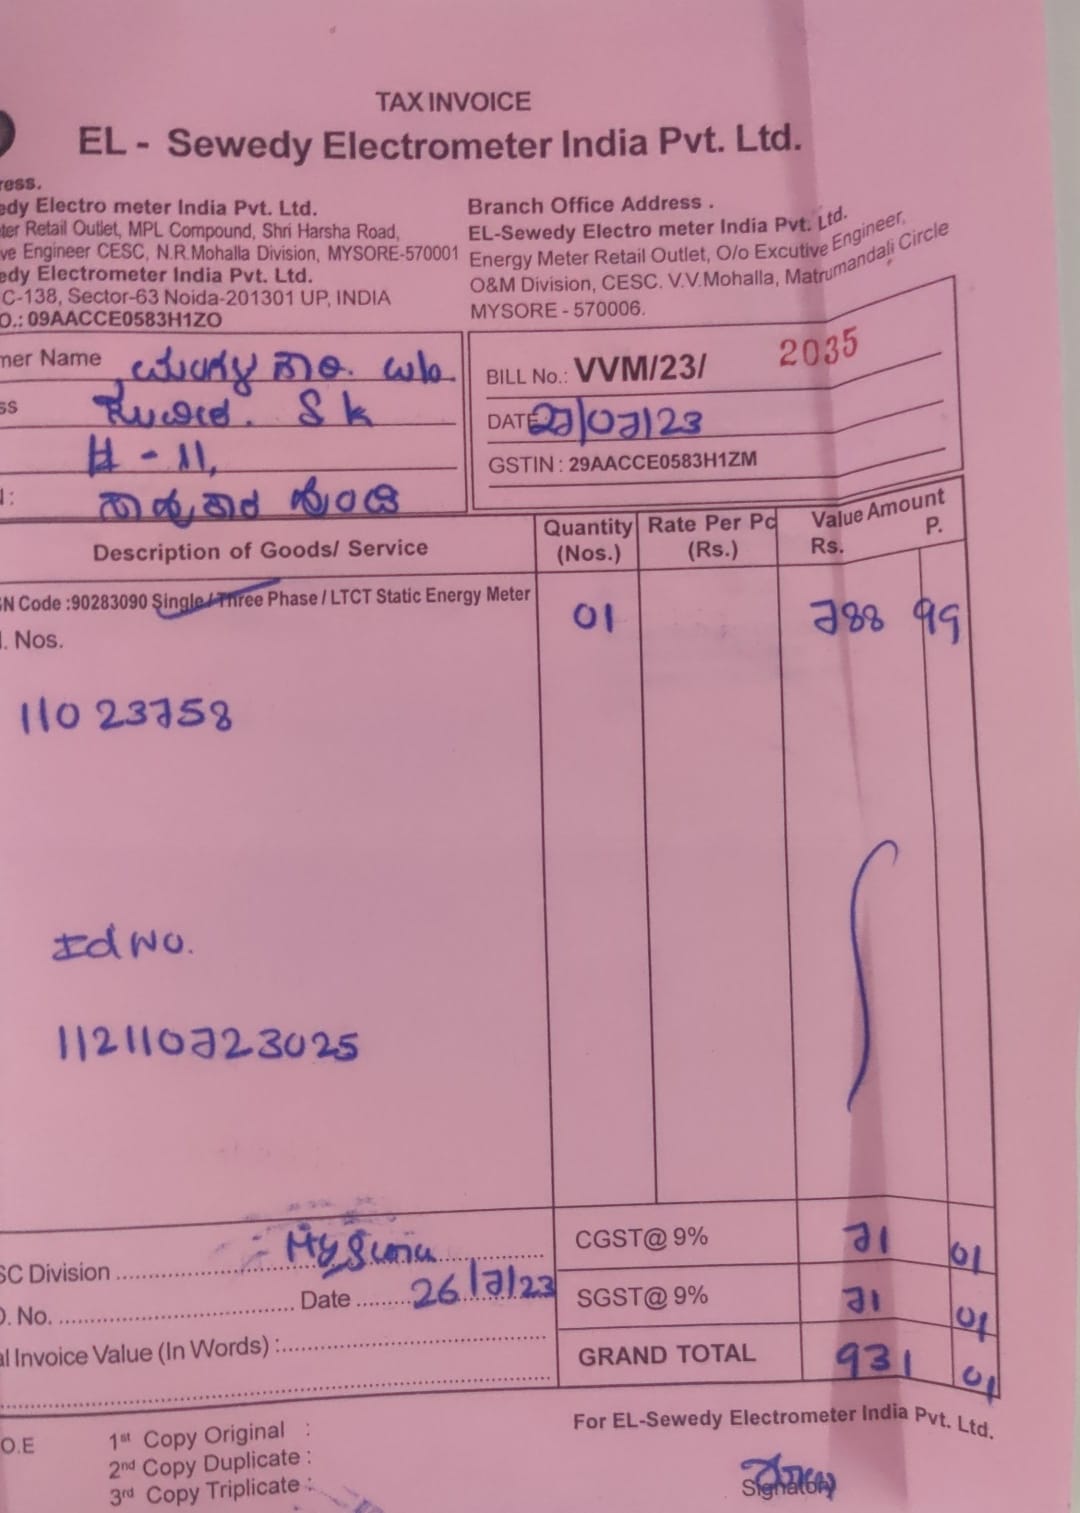 TAX INVOICE
EL - Sewedy Electrometer India Pvt. Ltd.
ress.
edy Electro meter India Pvt. Ltd.
ter Retail Outlet, MPL Compound, Shri Harsha Road,
ve Engineer CESC, N.R.Mohalla Division, MYSORE-570001
edy Electrometer India Pvt. Ltd.
C-138, Sector-63 Noida-201301 UP, INDIA
O.: 09AACCE0583H1ZO
Branch Office Address .
EL-Sewedy Electro meter India Pvt. Ltd.
Energy Meter Retail Outlet, O/o Excutive Engineer,
O&M Division, CESC. V.V.Mohalla, Matrumandali Circle
MYSORE - 570006.
mer Name
ss S k
H - 11,
BILL No.: VVM/23/ 2035
DATE 27/07/23
GSTIN : 29AACCE0583H1ZM
Description of Goods/ Service Quantity (Nos.) Rate Per Pc (Rs.) Value Amount Rs. P.
SN Code :90283090 Single / Three Phase / LTCT Static Energy Meter 01 788 99
l. Nos.
11023758
Id No.
112110723025
SC Division Mysuru
O. No. Date 26/7/23
al Invoice Value (In Words) :
CGST@ 9% 71 01
SGST@ 9% 71 01
GRAND TOTAL 931 01
For EL-Sewedy Electrometer India Pvt. Ltd.
O.E
1st Copy Original :
2nd Copy Duplicate :
3rd Copy Triplicate :
Signatory